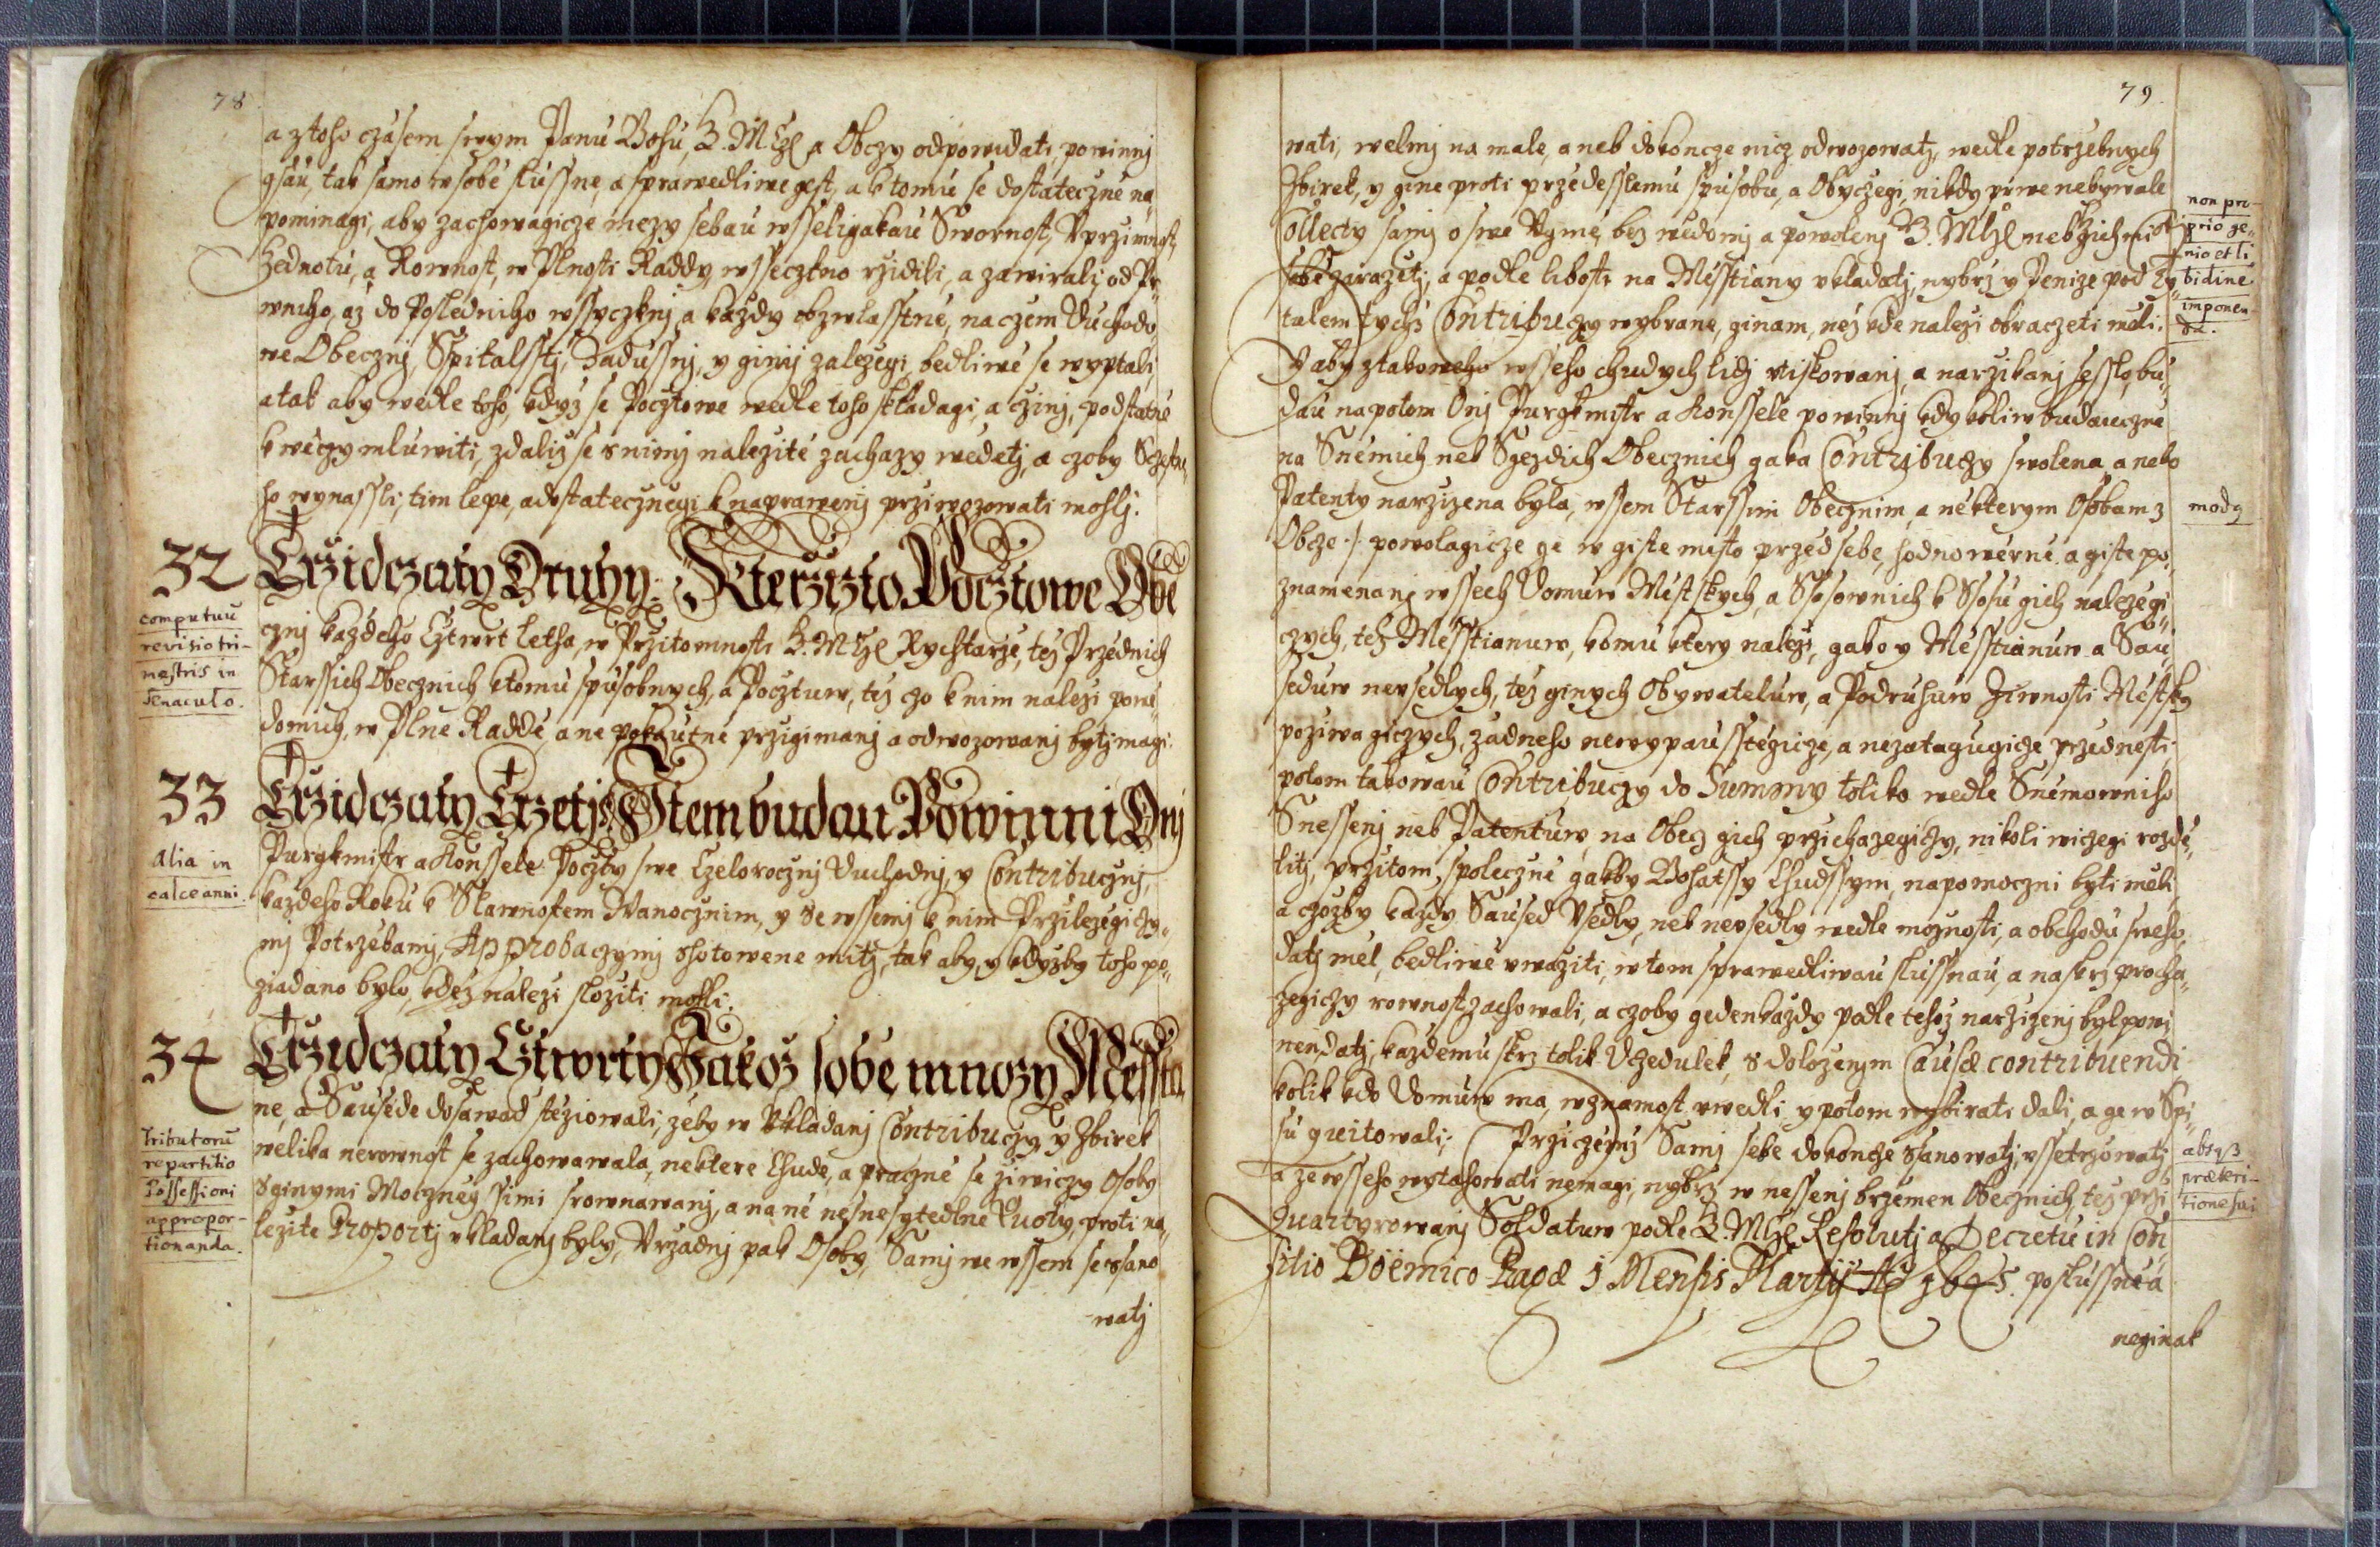 78
a z toho czasem swym Panu Bohu, J. M Cze a Obczy odpowidati, powinnj
gsau, tak samo w sobě slussne, a sprawedliwe gest, a k tomu se dostateczně na
pominagi, aby zachowagicze mezy sebau wsseligakau Swornost, Vprzimnost,
Jednotu, a Rownost, w Plnosti Raddy, wsseczkno rzidili, a zawirali, od Pr
wniho, až do Posledniho wssyczknj a každy obzwlasstně, na czem Duchodo
we Obecznj, Sspitalsstj, Zadussnj, y ginij zaležegi, bedliwě se wyptali,
a tak aby wedle toho, kdyz se Pocztowe wedle toho skladagi, a czinj, podstatně
k wěczy mluwiti, zdaliž se s nimj naležitě zachazy wědětj, a czoby
ho wynassli, tim lepe, a dostatecznegi k naprawenj prziwozowati mohlj.
32 Trzidczaty Druhy. Kterzizto Pocztowe Obe
computuu
revisio tri-
mestris in
Senaculo.
cznj každeho Cztwrt Letha, w Przitomnosti J. M Cze Rychtarže, tež Przednich
Starssich Obecznich k tomu spusobnych, a Pocztuw, tež czo k nim naleži powě
domich, w Plne Raddě, a ne pokautně przigimanj a odwozowanj bytj magi.
33 Trzidczaty Trzetj. Item budau Powinni Onj
Alia in
calce anni.
Purgkmistr a Konssele Poczty swe Czelorocznj Duchodnj, y Contribucznj,
každeho Roku k Slawnostem Wanocznim, y se wssemj k nim Przilezegiczy
mj Potrzebamj, Approbaczymj zhotowene mitj, tak aby, y kdyžby toho po
žiadano bylo, kdež naleži složiti mohli.
34 Trzidczaty Cztwrty Jakoz sobe mnozy Messtia
Tributoru
repartitio
Possessioni
appropor-
tionanda.
ne, a Sausede dosawad stěziowali, žeby w Vkladanj Contribuczy, y Zbirek
welika nerownost se zachowawala, nektere Chude, a praczně se žiwiczy Osoby
s ginymi Moczněgssimi srownawanj, a na ně nesnesytedlne Quoty, proti na
ležite Proportj vkladanj byly, Vrzadnj pak Osoby, Samj we wssem se ssano
watj
79
wati, welmj na male, a neb dokoncze nicz odwozowatj, wedle potrzebnych
Zbirek, y gine proti przedesslemu spusobu, a Obyczegi, nikdy prwe nebywale
Collecty samj o swe Vgmě, bez wědomj a powolenj J. M Cze neb Jich mi
non pro-
prio ge-
nio et li
bidine
imponen-
da.
sobě zarazetj, a podle libosti na Messtiany vkladatj, nybrž y Penize pod
talem tychž Contribuczy wybrane, ginam, než kde naleži obraczeti měli.
Y aby z takoweho wsseho chudych lidj vtiskowanj, a narzikanj sesslo, bu
dau napotom Onj Purgkmistr a Konssele powinnj kdykoliw budauczně
na Sněmich neb Sgezdich Obecznich gaka Contribuczy swolena, a nebo
Patenty narzizena byla, wssem Starssim Obecznim, a něktterym Osobam z
mody
Obcze :/: powolagicze ge w giste misto przed sebe, hodnowěrně a giste po
znamenanj wssech Domuw Městskych, a Ssosownich k Ssosu gich naležegi
czych, tež Messtianuw, komu ktery naleži, gako y Messtianuw a Sau
seduw nevsedlych, tež ginych Obywateluw, a Podruhuw Ziwnosti Městsky
poziwagiczych, žadneho newypausstěgicze, a nezatagugicze przednesti,
potom takowau Contribuczy do Summy toliko wedle Sněmowniho
Snessenj neb Patentuw na Obecz gich przichazegiczy, nikoli wiczegi rozdě
litj, przitom, spolecznè gakby Bohatssy Chudssym, napomoczni byti měli,
a czožby každy Saused Vsedly, neb nevsedly wedle možnosti, a obchodu sweho
datj měl, bedliwě vwažiti, w tom sprawedliwau slussnau, a naskrz procha
zegiczy rownost zachowali, a czoby geden každy podle tehož narzizenj byl powi
nen datj, každemu skrz tolik Czedulek, s doloženjm Causæ contribuendi
kolik kdo Domuw ma, w znamost vwedli, y potom wybirati dali, a ge w Spi
su quitowali; Przicžemž Samj sebe dokoncze ssanowatj, vssetrzowatj,
absq3
præteri-
tione sui
a ze wsseho wytahowati nemagi, nybrž w nessenj brzemen Obecznich, tež przi
Quartyrowanj Soldatuw podle J. M Cze Resolutj a Decretu in Con
silio Boëmico Pragæ 1 Mensis Martij A° 1645. poslussně a
neginak